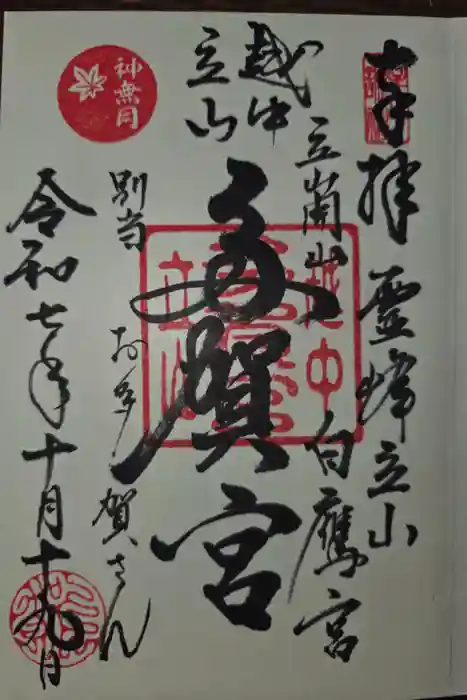 奉拝 霊峰立山
立山開山 白鷹宮
越中
立山
多賀宮
越中
立山
別当 お多賀さん
神無月
令和七年十月十九日